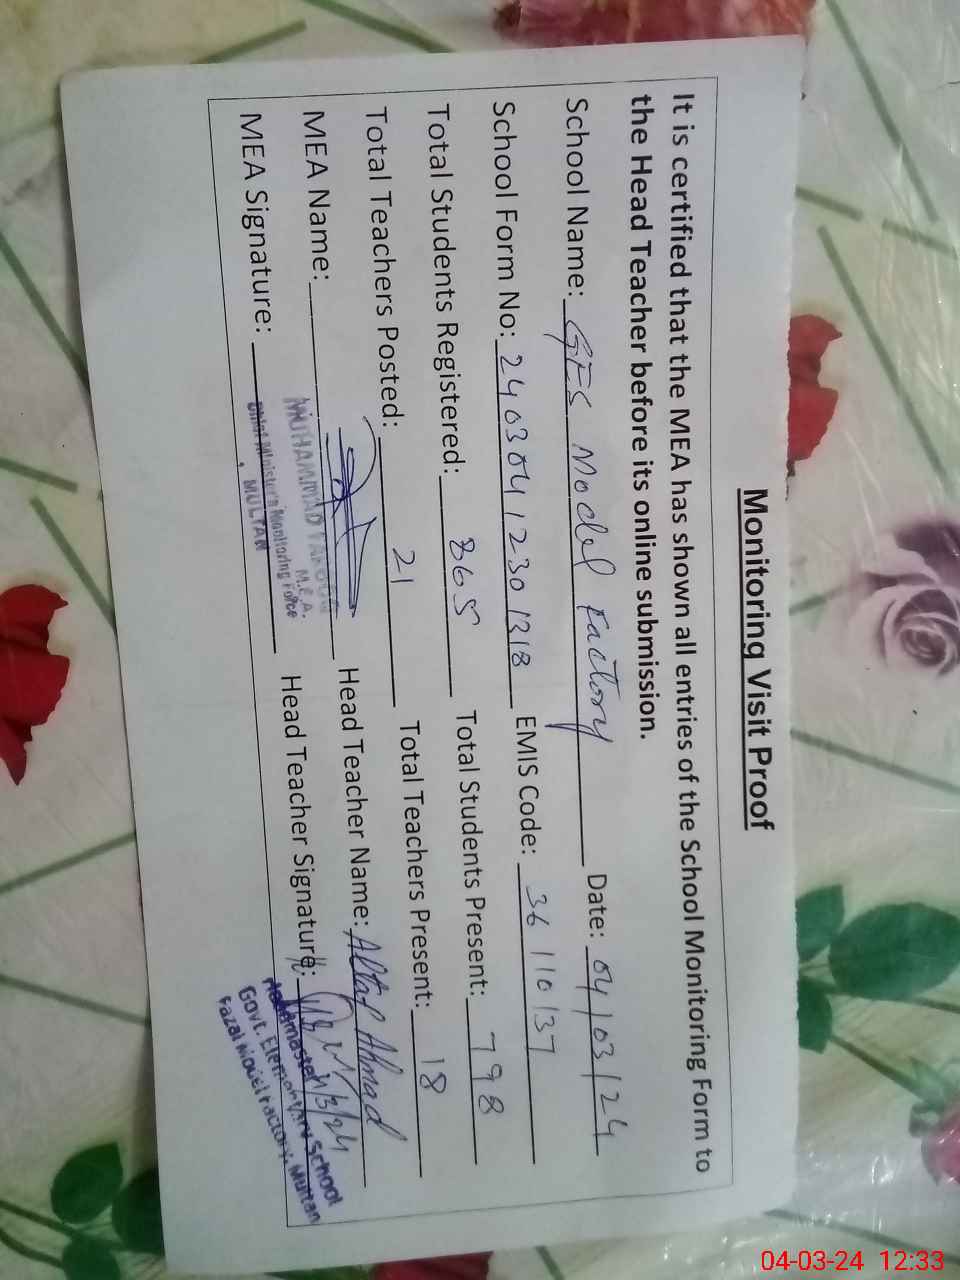 Monitoring Visit Proof
It is certified that the MEA has shown all entries of the School Monitoring Form to
the Head Teacher before its online submission.
School Name: GES Model Factory Date: 04/03/24
School Form No: 24030412301318 EMIS Code: 36110137
Total Students Registered: 865 Total Students Present: 798
Total Teachers Posted: 21 Total Teachers Present: 18
MEA Name: Head Teacher Name: Altaf Ahmad
MUHAMMAD
M.E.A.
MEA Signature: Head Teacher Signature:
Chief Minister's Monitoring Force
MULTAN
Headmaster
Govt. Elementary School
Fazal Model Factory, Multan
04-03-24 12:33